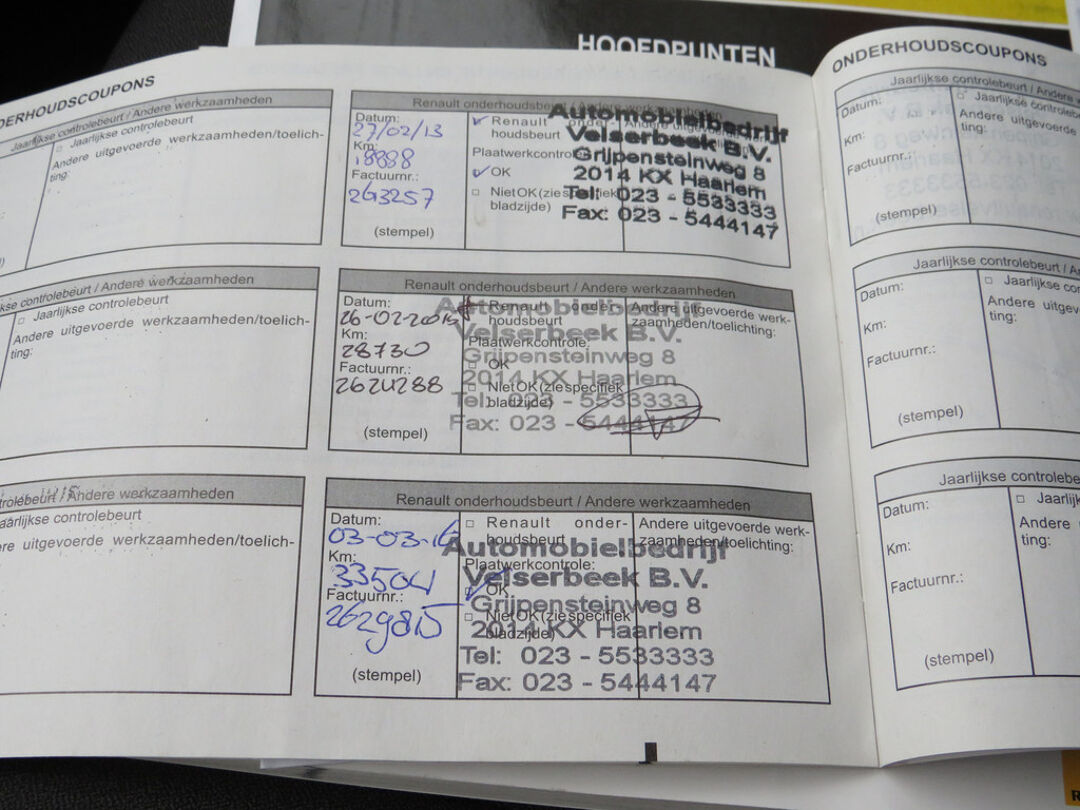 HOOFDPUNTEN
DERHOUDSCOUPONS
Jaarlijkse controlebeurt / Andere werkzaamheden
□ Jaarlijkse controlebeurt
Andere uitgevoerde werkzaamheden/toelich-
ting:
kse controlebeurt / Andere werkzaamheden
□ Jaarlijkse controlebeurt
Andere uitgevoerde werkzaamheden/toelich-
ting:
trolebeurt / Andere werkzaamheden
aarlijkse controlebeurt
ere uitgevoerde werkzaamheden/toelich-
Renault onderhoudsbeurt / Andere werkzaamheden
Datum:
27/02/13
Km:
18888
Factuurnr.:
(stempel)
Renault onder-
houdsbeurt
Plaatwerkcontrole
OK
□ Niet OK (zie specifiek
bladzijde)
Automobielbedrijf
Velserbeek B.V.
Grijpensteinweg 8
2014 KX Haarlem
Tel: 023 - 5533333
Fax: 023 - 5444147
Renault onderhoudsbeurt / Andere werkzaamheden
Datum:
26-02-2015
Km:
28730
Factuurnr.:
(stempel)
Renault onder-
houdsbeurt
Plaatwerkcontrole:
□ OK
□ Niet OK (zie specifiek
bladzijde)
Andere uitgevoerde werk-
zaamheden/toelichting:
Automobielbedrijf
Velserbeek B.V.
Grijpensteinweg 8
2014 KX Haarlem
Tel: 023 - 5533333
Fax: 023 - 5444147
Renault onderhoudsbeurt / Andere werkzaamheden
Datum:
03-03-16
Km:
33504
Factuurnr.:
2629815
(stempel)
□ Renault onder-
houdsbeurt
Plaatwerkcontrole:
OK
□ Niet OK (zie specifiek
bladzijde)
Andere uitgevoerde werk-
zaamheden/toelichting:
Automobielbedrijf
Velserbeek B.V.
Grijpensteinweg 8
2014 KX Haarlem
Tel: 023 - 5533333
Fax: 023 - 5444147
ONDERHOUDSCOUPONS
Jaarlijkse controlebeurt / Andere
Datum:
Km:
Factuurnr.:
(stempel)
□ Jaarlijkse controlebe
Andere uitgevoerde
ting:
Jaarlijkse controlebeurt / A
Datum:
Km:
Factuurnr.:
(stempel)
□ Jaarlijkse co
Andere uitgev
ting:
Jaarlijkse controlebe
Datum:
Km:
Factuurnr.:
(stempel)
□ Jaarlijk
Andere
ting: